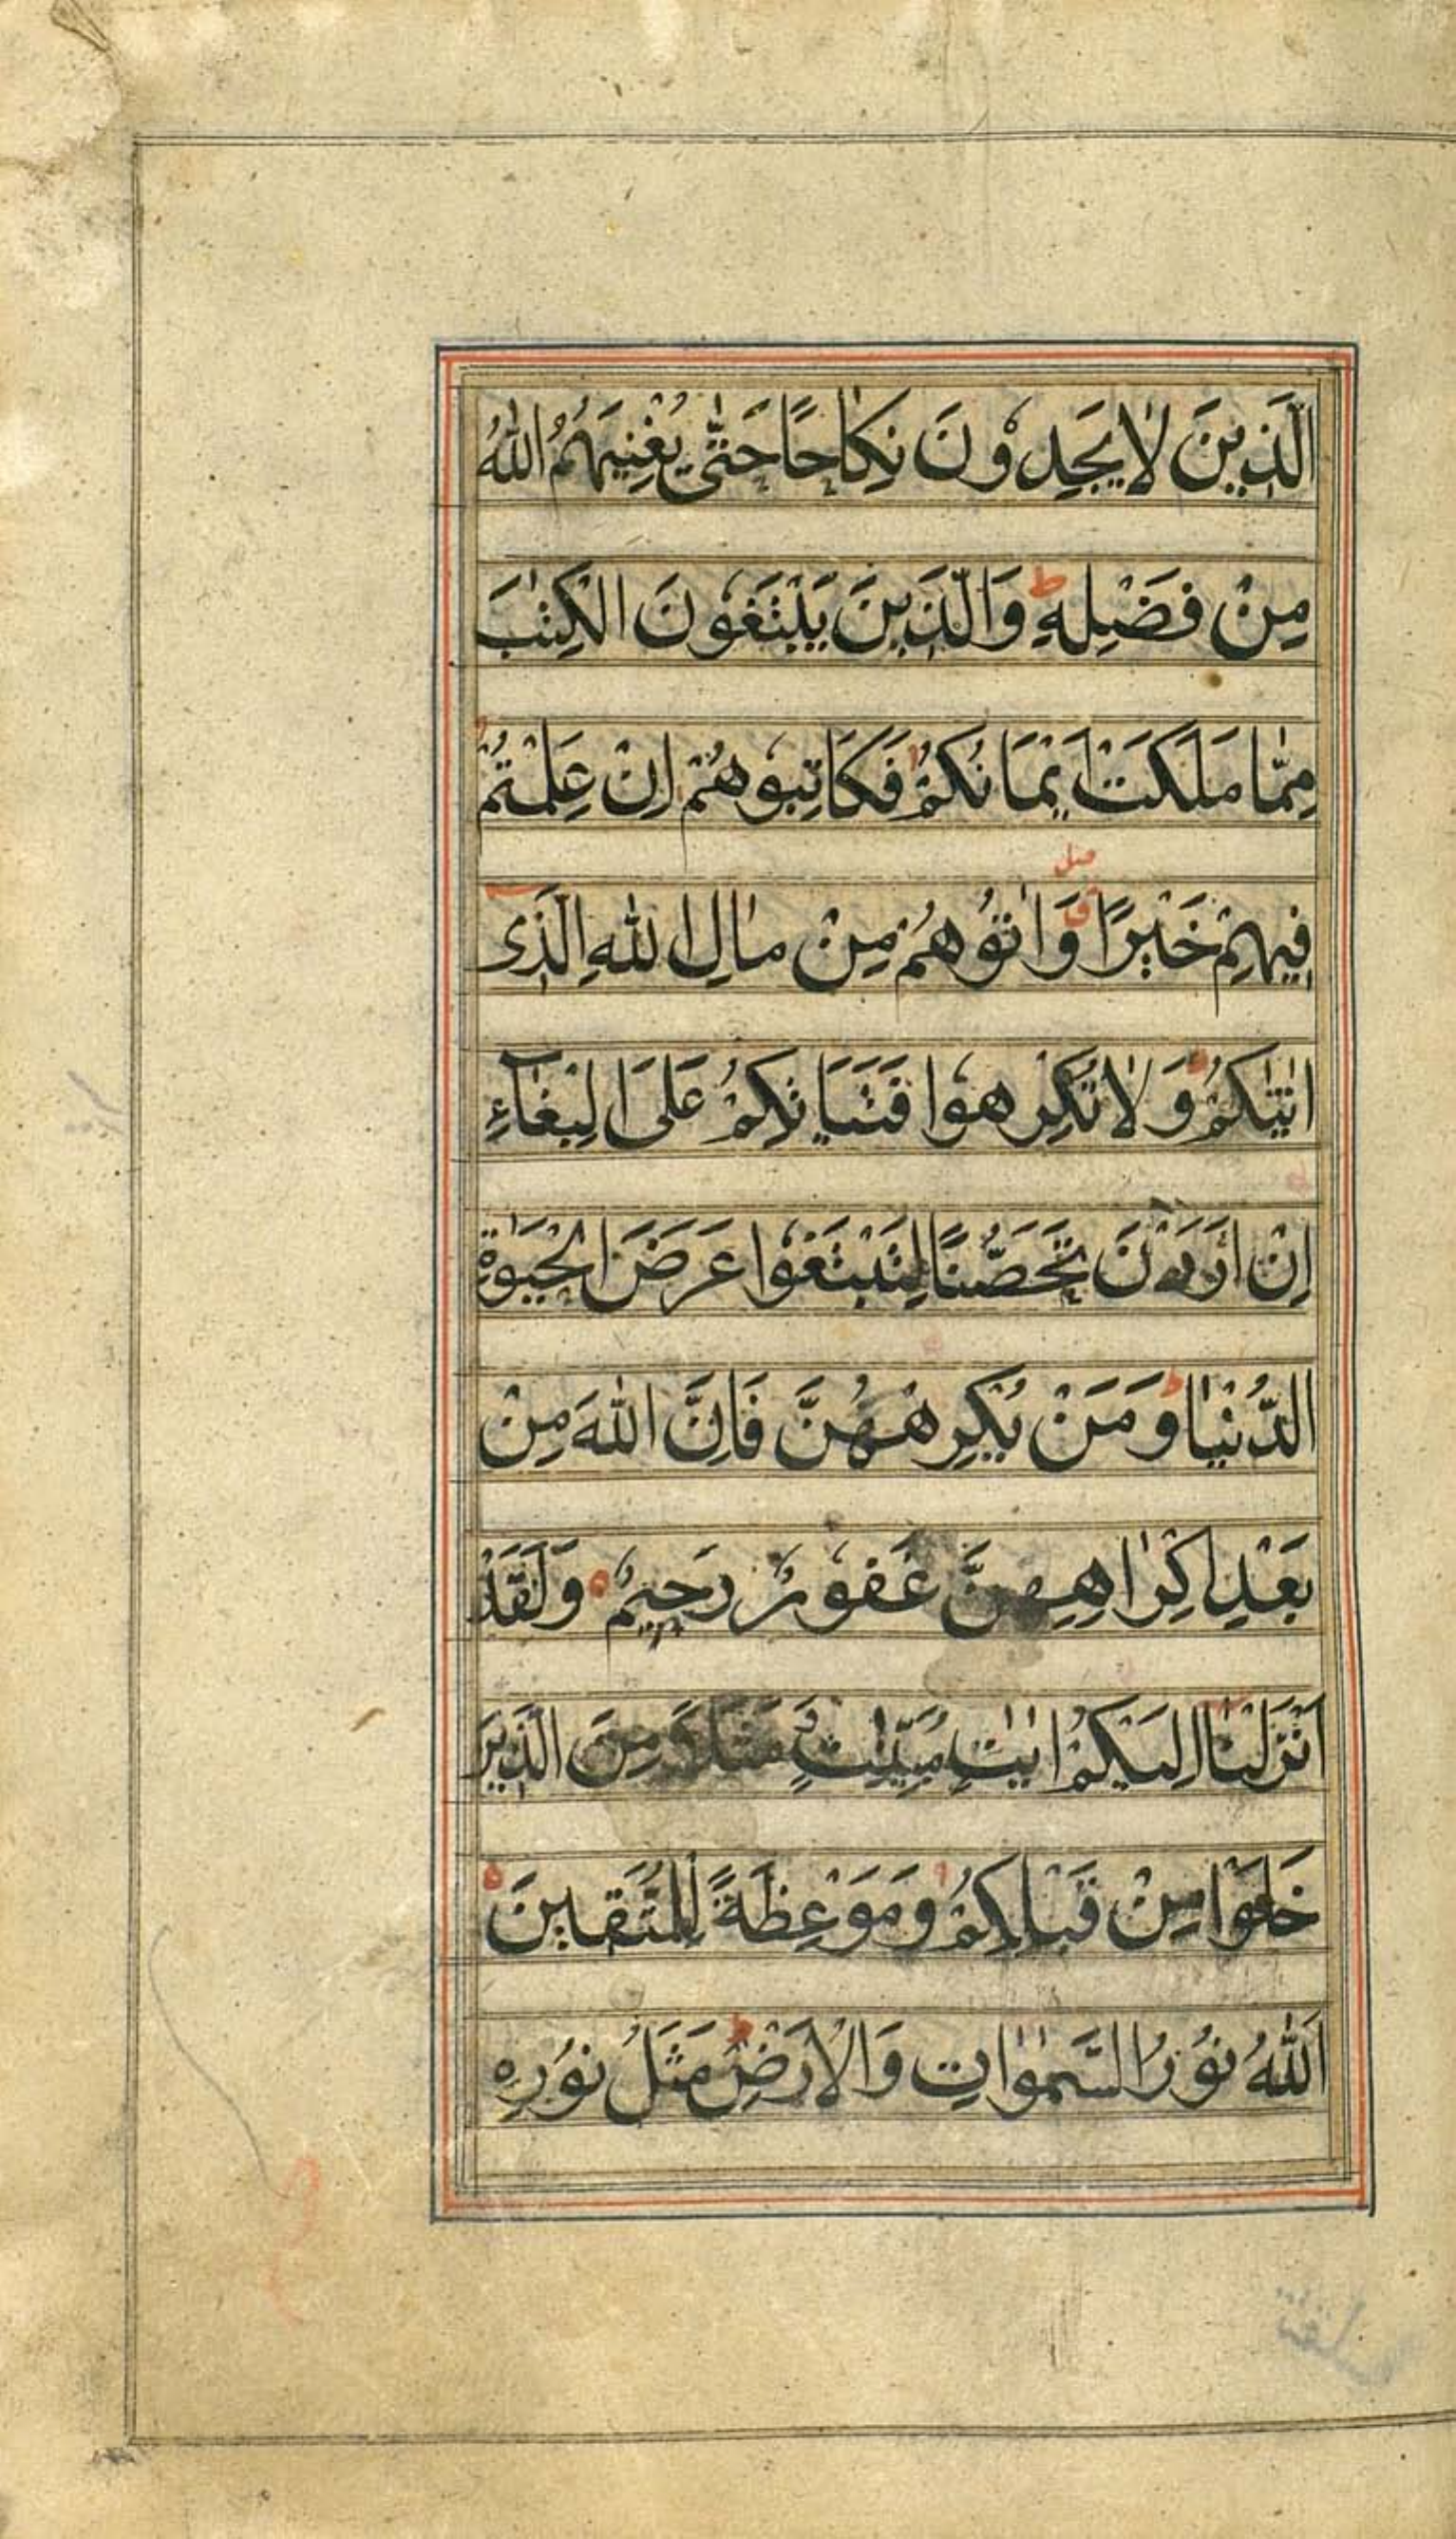 الَّذِينَ لَا يَجِدُونَ نِكَاحًا حَتّٰى يُغْنِيَهُمُ اللّٰهُ
مِنْ فَضْلِهٖ ط وَالَّذِينَ يَبْتَغُونَ الْكِتٰبَ
مِمَّا مَلَكَتْ اَيْمَانُكُمْ فَكَاتِبُوهُمْ اِنْ عَلِمْتُمْ
فِيهِمْ خَيْرًا وَاٰتُوهُمْ مِنْ مَالِ اللّٰهِ الَّذِى
اٰتٰيكُمْ وَلَا تُكْرِهُوا فَتَيَاتِكُمْ عَلَى الْبِغَاءِ
اِنْ اَرَدْنَ تَحَصُّنًا لِتَبْتَغُوا عَرَضَ الْحَيٰوةِ
الدُّنْيَا ط وَمَنْ يُكْرِهْهُنَّ فَاِنَّ اللّٰهَ مِنْ
بَعْدِ اِكْرَاهِهِنَّ غَفُورٌ رَحِيمٌ ه وَلَقَدْ
اَنْزَلْنَا اِلَيْكُمْ اٰيٰتٍ مُبَيِّنٰتٍ وَمَثَلًا مِنَ الَّذِينَ
خَلَوْا مِنْ قَبْلِكُمْ وَمَوْعِظَةً لِلْمُتَّقِينَ ه
اَللّٰهُ نُورُ السَّمٰوَاتِ وَالْاَرْضِ ط مَثَلُ نُورِهِ